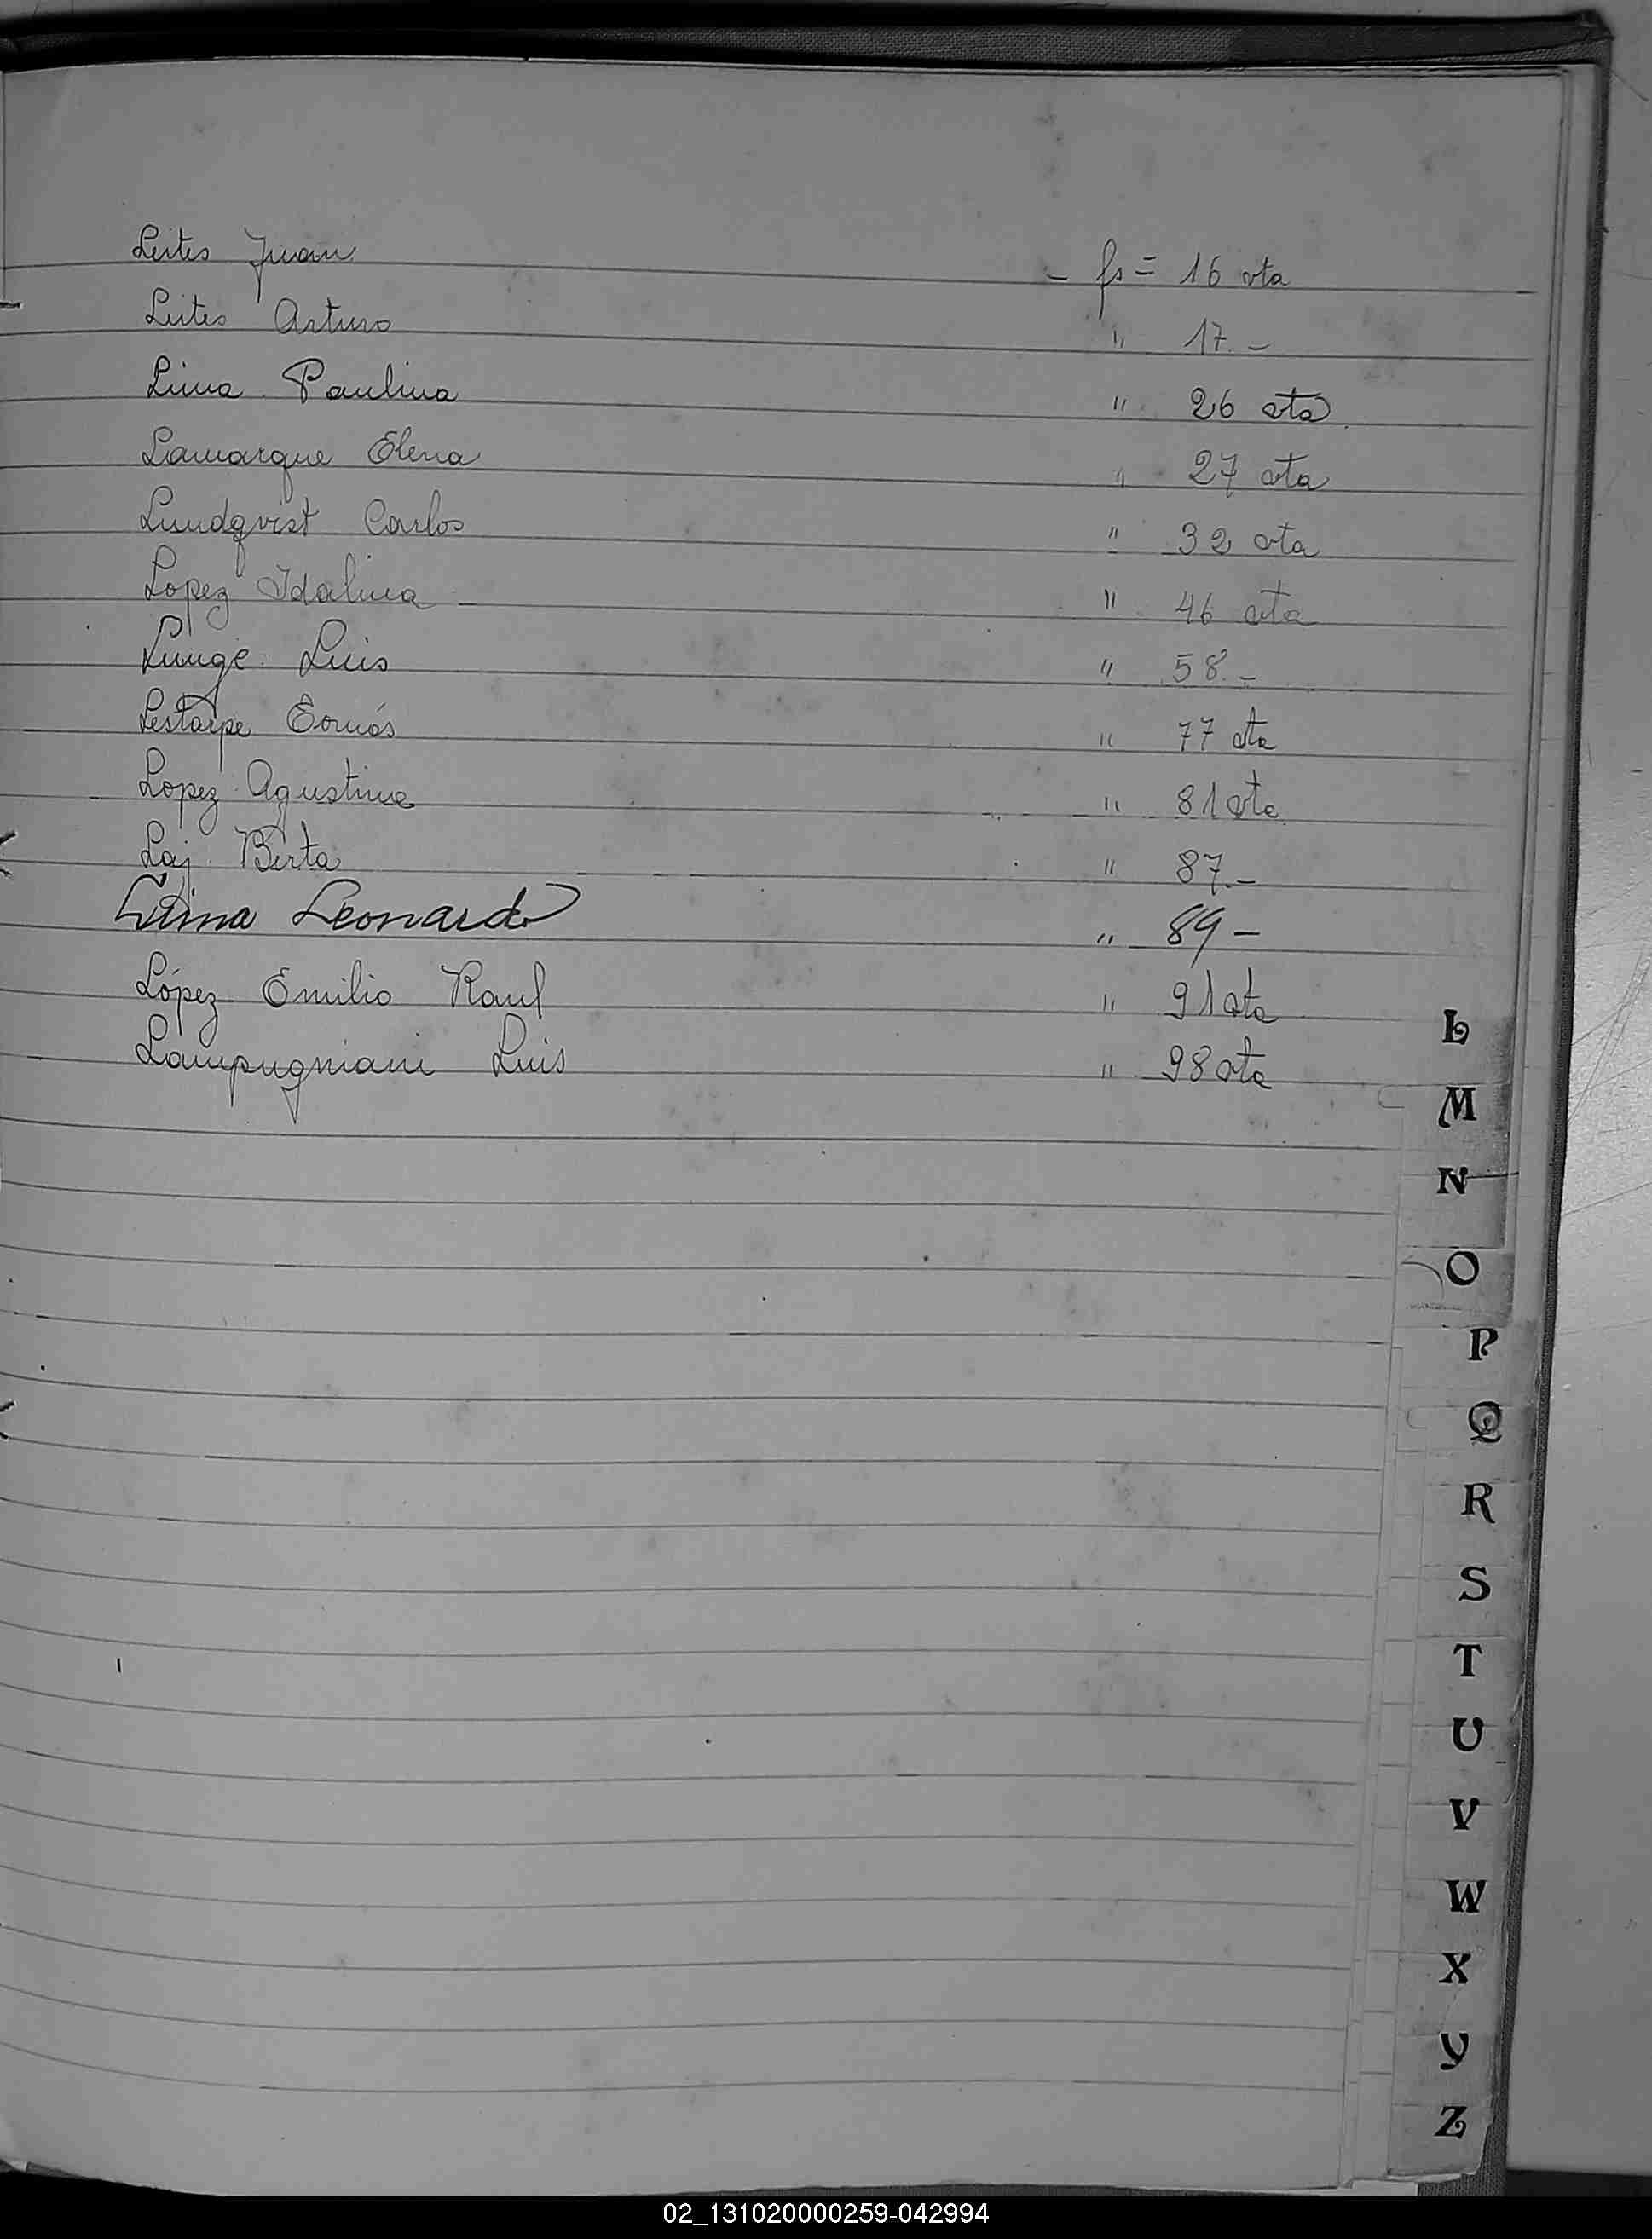 Leites Juan - fs = 16 vta
Leites Arturo " 17.-
Lima Paulina " 26 vta
Lamarque Elena " 27 vta
Lundqvist Carlos " 32 vta
Lopez Idalina " 46 vta
Lunge Luis " 58.-
Lestarpe Tomás " 77 vta
Lopez Agustina " 81 vta
Laj Berta " 87.-
Leonardo " 89-
López Emilio Raul " 91 vta
Lampugniani Luis " 98 vta
L
M
N
O
P
Q
R
S
T
U
V
W
X
Y
Z
02_131020000259-042994